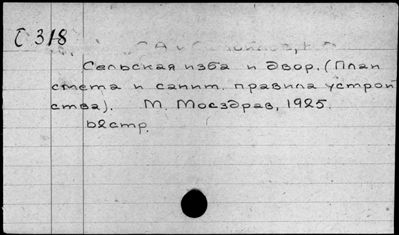 С 318
Сельская изба и двор. (План
смета и санит. правила устрой
ства). М. Мосздрав, 1925.
62стр.